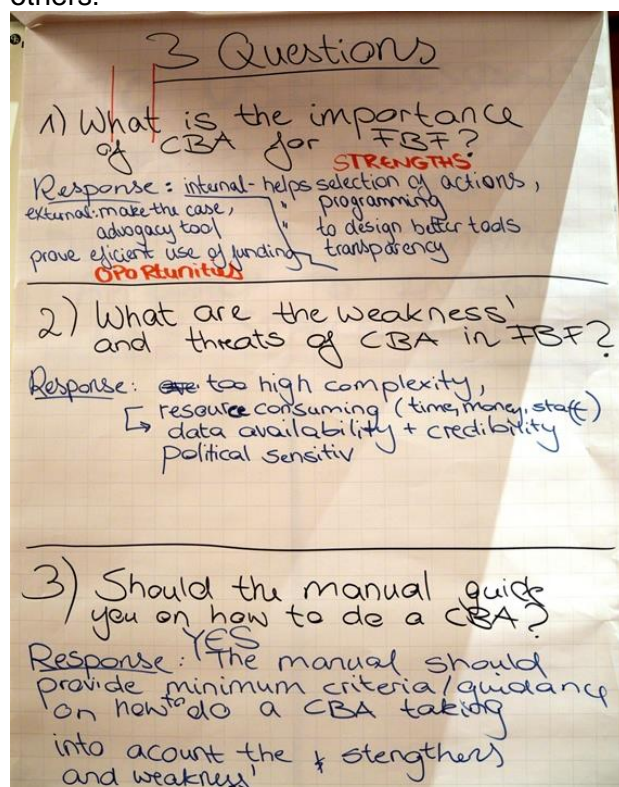 others.
3 Questions
1) What is the importance
of CBA for FBF?
STRENGTHS
Response: internal - helps selection of actions,
external: make the case, " programming
advogacy tool " to design better tools
prove eficient use of funding transparency
OPORtunitus
2) What are the weakness'
and threats of CBA in FBF?
Response: too high complexity,
resource consuming (time, money, staff)
data availability + credibility
political sensitiv
3) Should the manual guide
you on how to do a CBA?
YES
Response: The manual should
provide minimum criteria/guidance
on how to do a CBA taking
into acount the stengthers
and weakness'